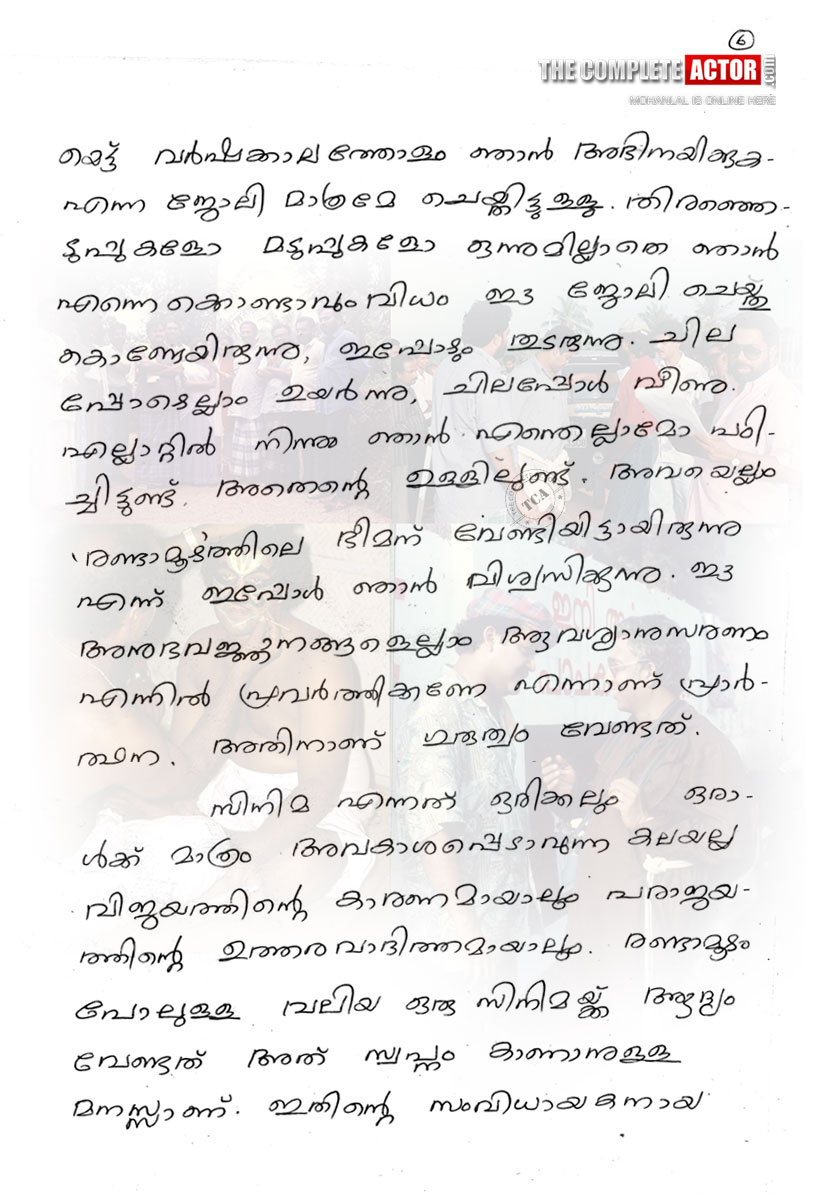 6
THE COMPLETE ACTOR .com
MOHANLAL IS ONLINE HERE
യെട്ട് വർഷക്കാലത്തോളം ഞാൻ അഭിനയിക്കുക-
എന്ന ജോലി മാത്രമേ ചെയ്തിട്ടുള്ളു. തിരഞ്ഞെ-
ടുപ്പുകളോ മടുപ്പുകളോ ഒന്നുമില്ലാതെ ഞാൻ
എന്നെകൊണ്ടാവുംവിധം ഈ ജോലി ചെയ്തു
കൊണ്ടേയിരുന്നു, ഇപ്പോഴും തുടരുന്നു. ചില
പ്പോഴെല്ലാം ഉയർന്നു, ചിലപ്പോൾ വീണു.
എല്ലാറ്റിൽ നിന്നും ഞാൻ എന്തെല്ലാമോ പഠി-
ച്ചിട്ടുണ്ട്. അതെന്റെ ഉള്ളിലുണ്ട്. അവയെല്ലാം
'രണ്ടാമൂഴ'ത്തിലെ ഭീമന് വേണ്ടിയിട്ടായിരുന്നു
എന്ന് ഇപ്പോൾ ഞാൻ വിശ്വസിക്കുന്നു. ഈ
അനുഭവജ്ഞാനങ്ങളെല്ലാം ആവശ്യാനുസരണം
എന്നിൽ പ്രവർത്തിക്കണേ എന്നാണ് പ്രാർ-
ത്ഥന. അതിനാണ് ഗുരുത്വം വേണ്ടത്.
സിനിമ എന്നത് ഒരിക്കലും ഒരാ-
ൾക്ക് മാത്രം അവകാശപ്പെടാവുന്ന കലയല്ല
വിജയത്തിന്റെ കാരണമായാലും പരാജയ-
ത്തിന്റെ ഉത്തരവാദിത്തമായാലും. രണ്ടാമൂഴം
പോലുള്ള വലിയ ഒരു സിനിമയ്ക്ക് ആദ്യം
വേണ്ടത് അത് സ്വപ്നം കാണാനുള്ള
മനസ്സാണ്. ഇതിന്റെ സംവിധായകനായ
TCA